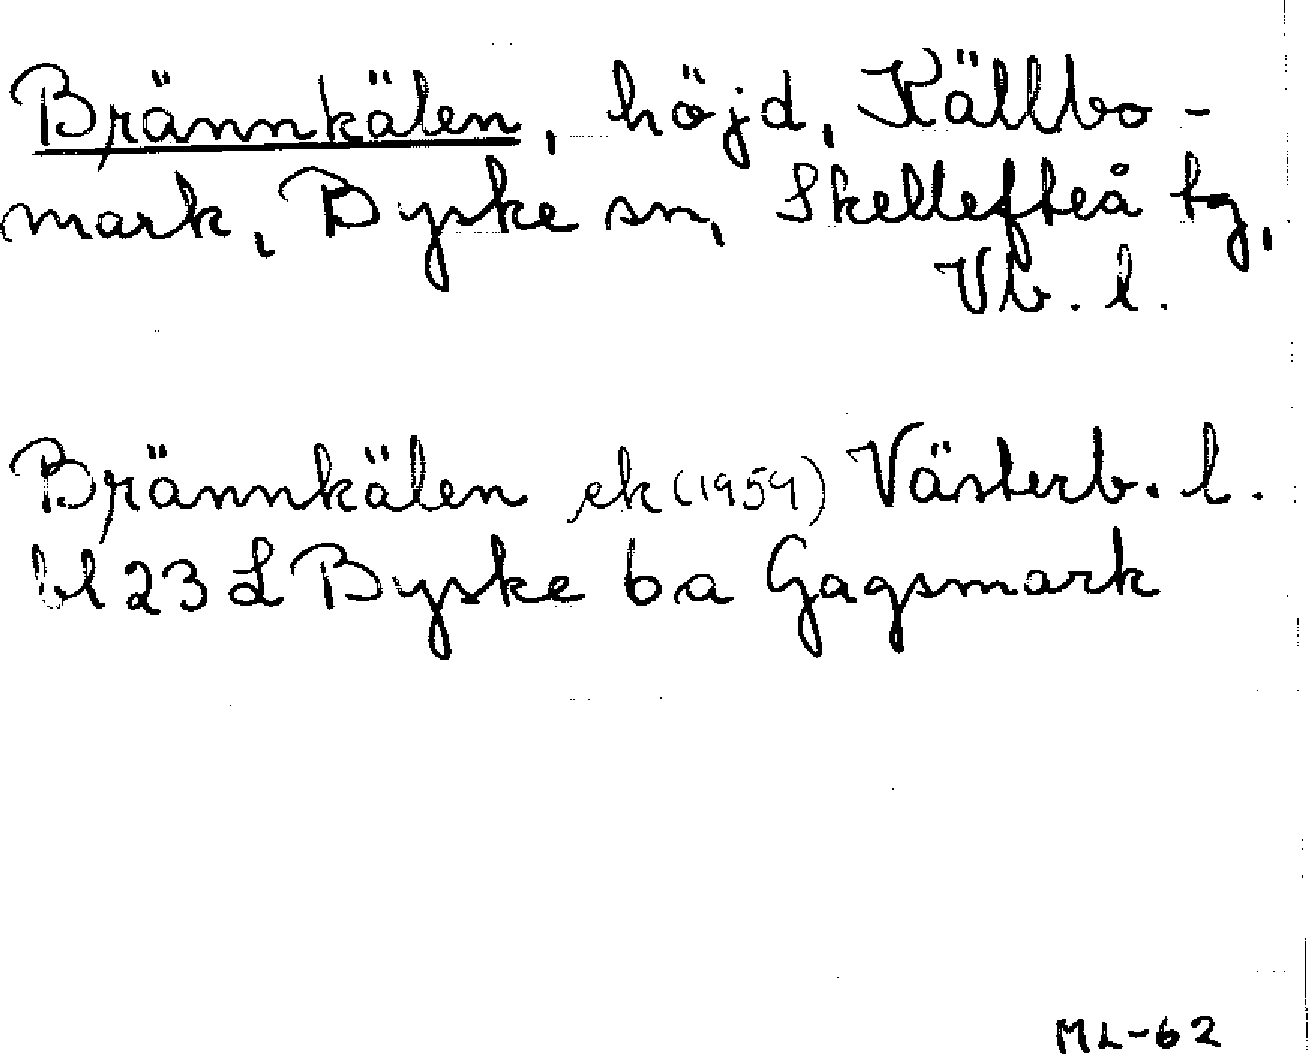 Brännkälen, höjd, Källbo-
mark, Byske sn, Skellefteå tg,
Vb. l.
Brännkälen ek (1959) Västerb. l.
bl 23 L Byske 6a Gagsmark
ML-62